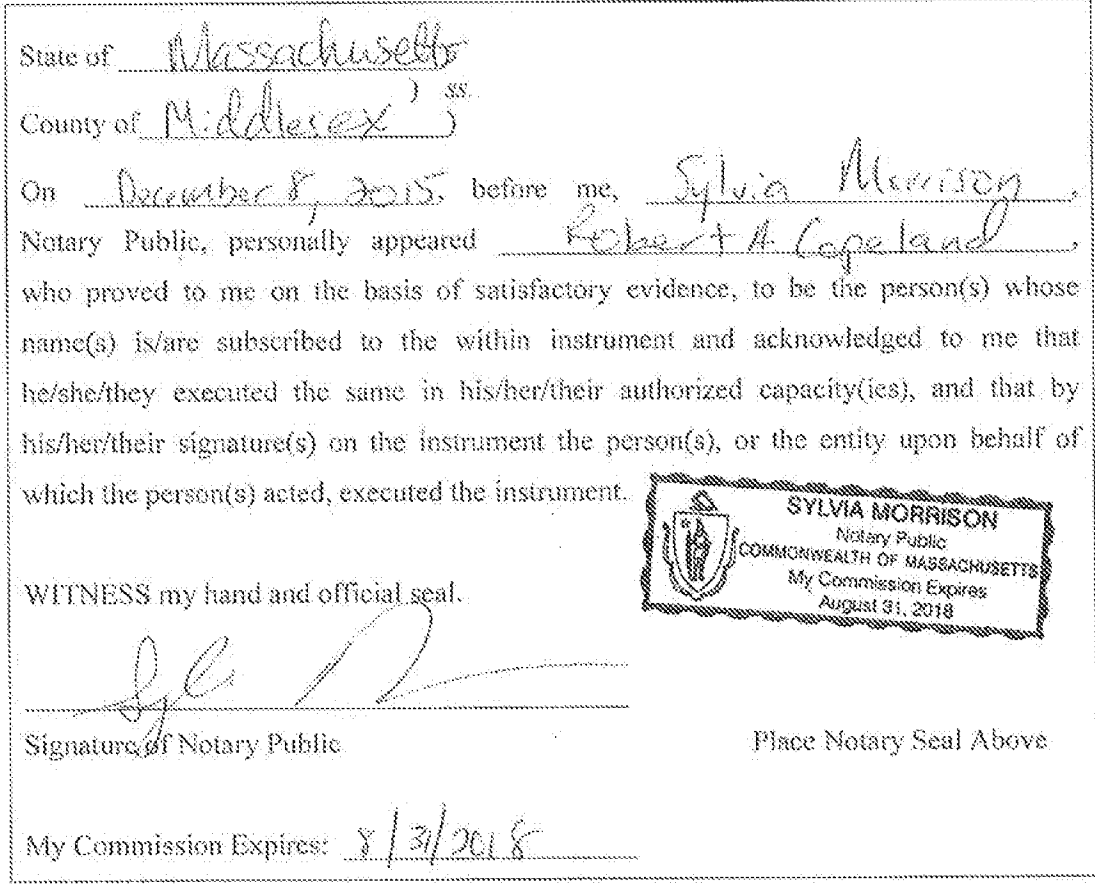 State of Massachusetts
) ss.
County of Middlesex )
On December 8, 2015, before me, Sylvia Morrison,
Notary Public, personally appeared Robert A Copeland,
who proved to me on the basis of satisfactory evidence, to be the person(s) whose
name(s) is/are subscribed to the within instrument and acknowledged to me that
he/she/they executed the same in his/her/their authorized capacity(ies), and that by
his/her/their signature(s) on the instrument the person(s), or the entity upon behalf of
which the person(s) acted, executed the instrument.
SYLVIA MORRISON
Notary Public
COMMONWEALTH OF MASSACHUSETTS
My Commission Expires
August 31, 2018
WITNESS my hand and official seal.
Signature of Notary Public
Place Notary Seal Above
My Commission Expires: 8/31/2018